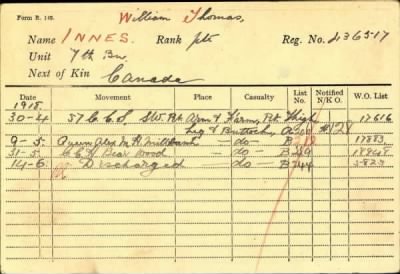 Form B. 148.
William Thomas,
Name INNES. Rank Pte Reg. No. 236517
Unit 7th Bn.
Next of Kin Canada
Date Movement Place Casualty List No. Notified N.K.O. W.O. List
1918.
30-4 57 C C S. GSW. Rt Arm & Farm, Rt Thigh 17616
Leg & Buttocks, A300
9-5. Queen Alex M. H. Millbank —do— B 17883.
31-5. C C H Bear Wood —do— B 18468
14-6 Discharged —do— B344